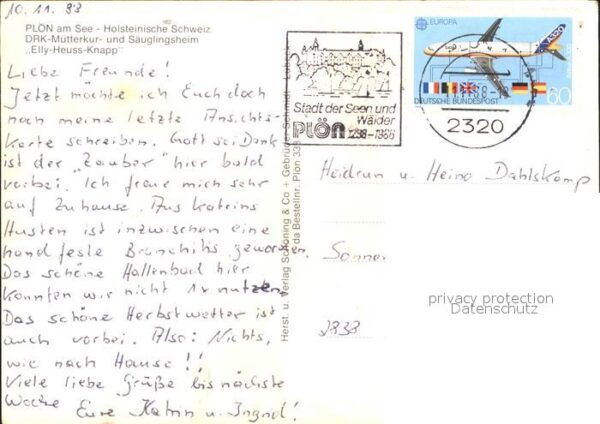 10.11.88
PLÖN am See - Holsteinische Schweiz
DRK-Mütterkur- und Säuglingsheim
„Elly-Heuss-Knapp"
Liebe Freunde!
Jetzt möchte ich Euch doch
noch meine letzte Ansichts-
karte schreiben. Gott sei Dank
ist der „Zauber" hier bald
vorbei. Ich freue mich sehr
auf Zuhause. Aus Katrins
Husten ist inzwischen eine
handfeste Bronchitis geworden.
Das schöne Hallenbad hier
konnten wir nicht 1x nutzen,
Das schöne Herbstwetter ist
auch vorbei. Also: Nichts,
wie nach Hause!!
Viele liebe Grüße bis nächste
Woche Eure Katrin u. Ingrid!
Herst. u. Verlag Schöning & Co + Gebrüder Schmidt
Bestellnr. Plön
Stadt der Seen und
Wälder
PLÖN 1238-1988
EUROPA
DEUTSCHE BUNDESPOST
60
2320
Heidrun u. Heino Dahlskamp
2838
privacy protection
Datenschutz